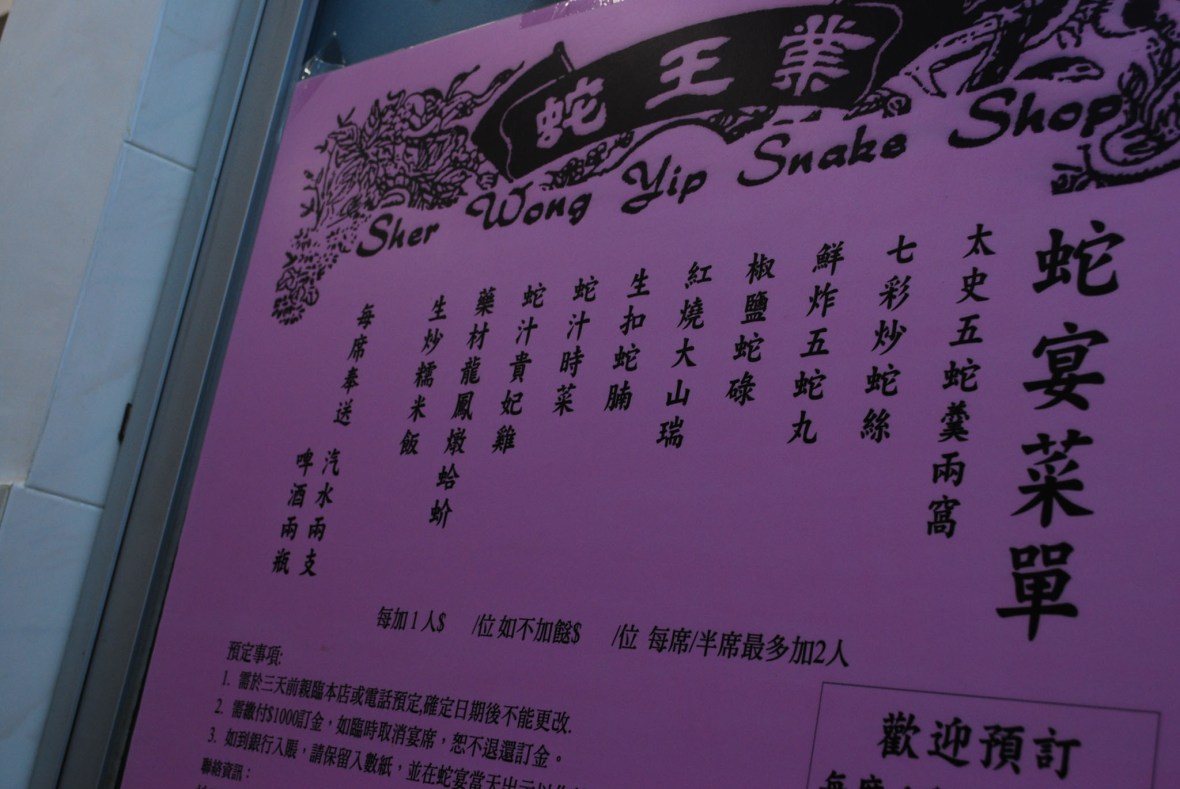 蛇王業
Sher Wong Yip Snake Shop
蛇宴菜單
太史五蛇羹兩窩
七彩炒蛇絲
鮮炸五蛇丸
椒鹽蛇碌
紅燒大山瑞
生扣蛇腩
蛇汁時菜
蛇汁貴妃雞
藥材龍鳳燉蛤蚧
生炒糯米飯
每席奉送
汽水兩支
啤酒兩瓶
每加1人$ /位 如不加餸$ /位 每席/半席最多加2人
預定事項:
1. 需於三天前親臨本店或電話預定,確定日期後不能更改.
2. 需繳付$1000訂金，如臨時取消宴席，恕不退還訂金。
3. 如到銀行入賬，請保留入數紙，並在蛇宴當天出示
聯絡資訊：
歡迎預訂
每席